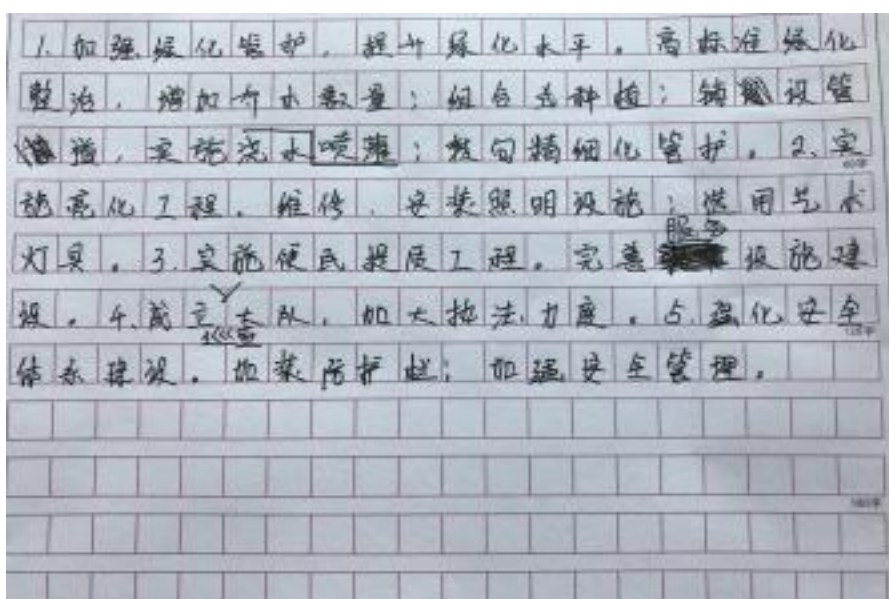 1.加强绿化管护,提升绿化水平。高标准绿化
整治,增加乔木数量;组合去种植;铺设管
道,实施浇水喷灌;抓包精细化管护。2.实
施亮化工程。维修、安装照明设施;选用艺术
灯具。3.实施便民提质工程。完善服务设施建
设。4.成立大队,加大执法力度。5.强化安全
体系建设。加装防护栏;加强安全管理。